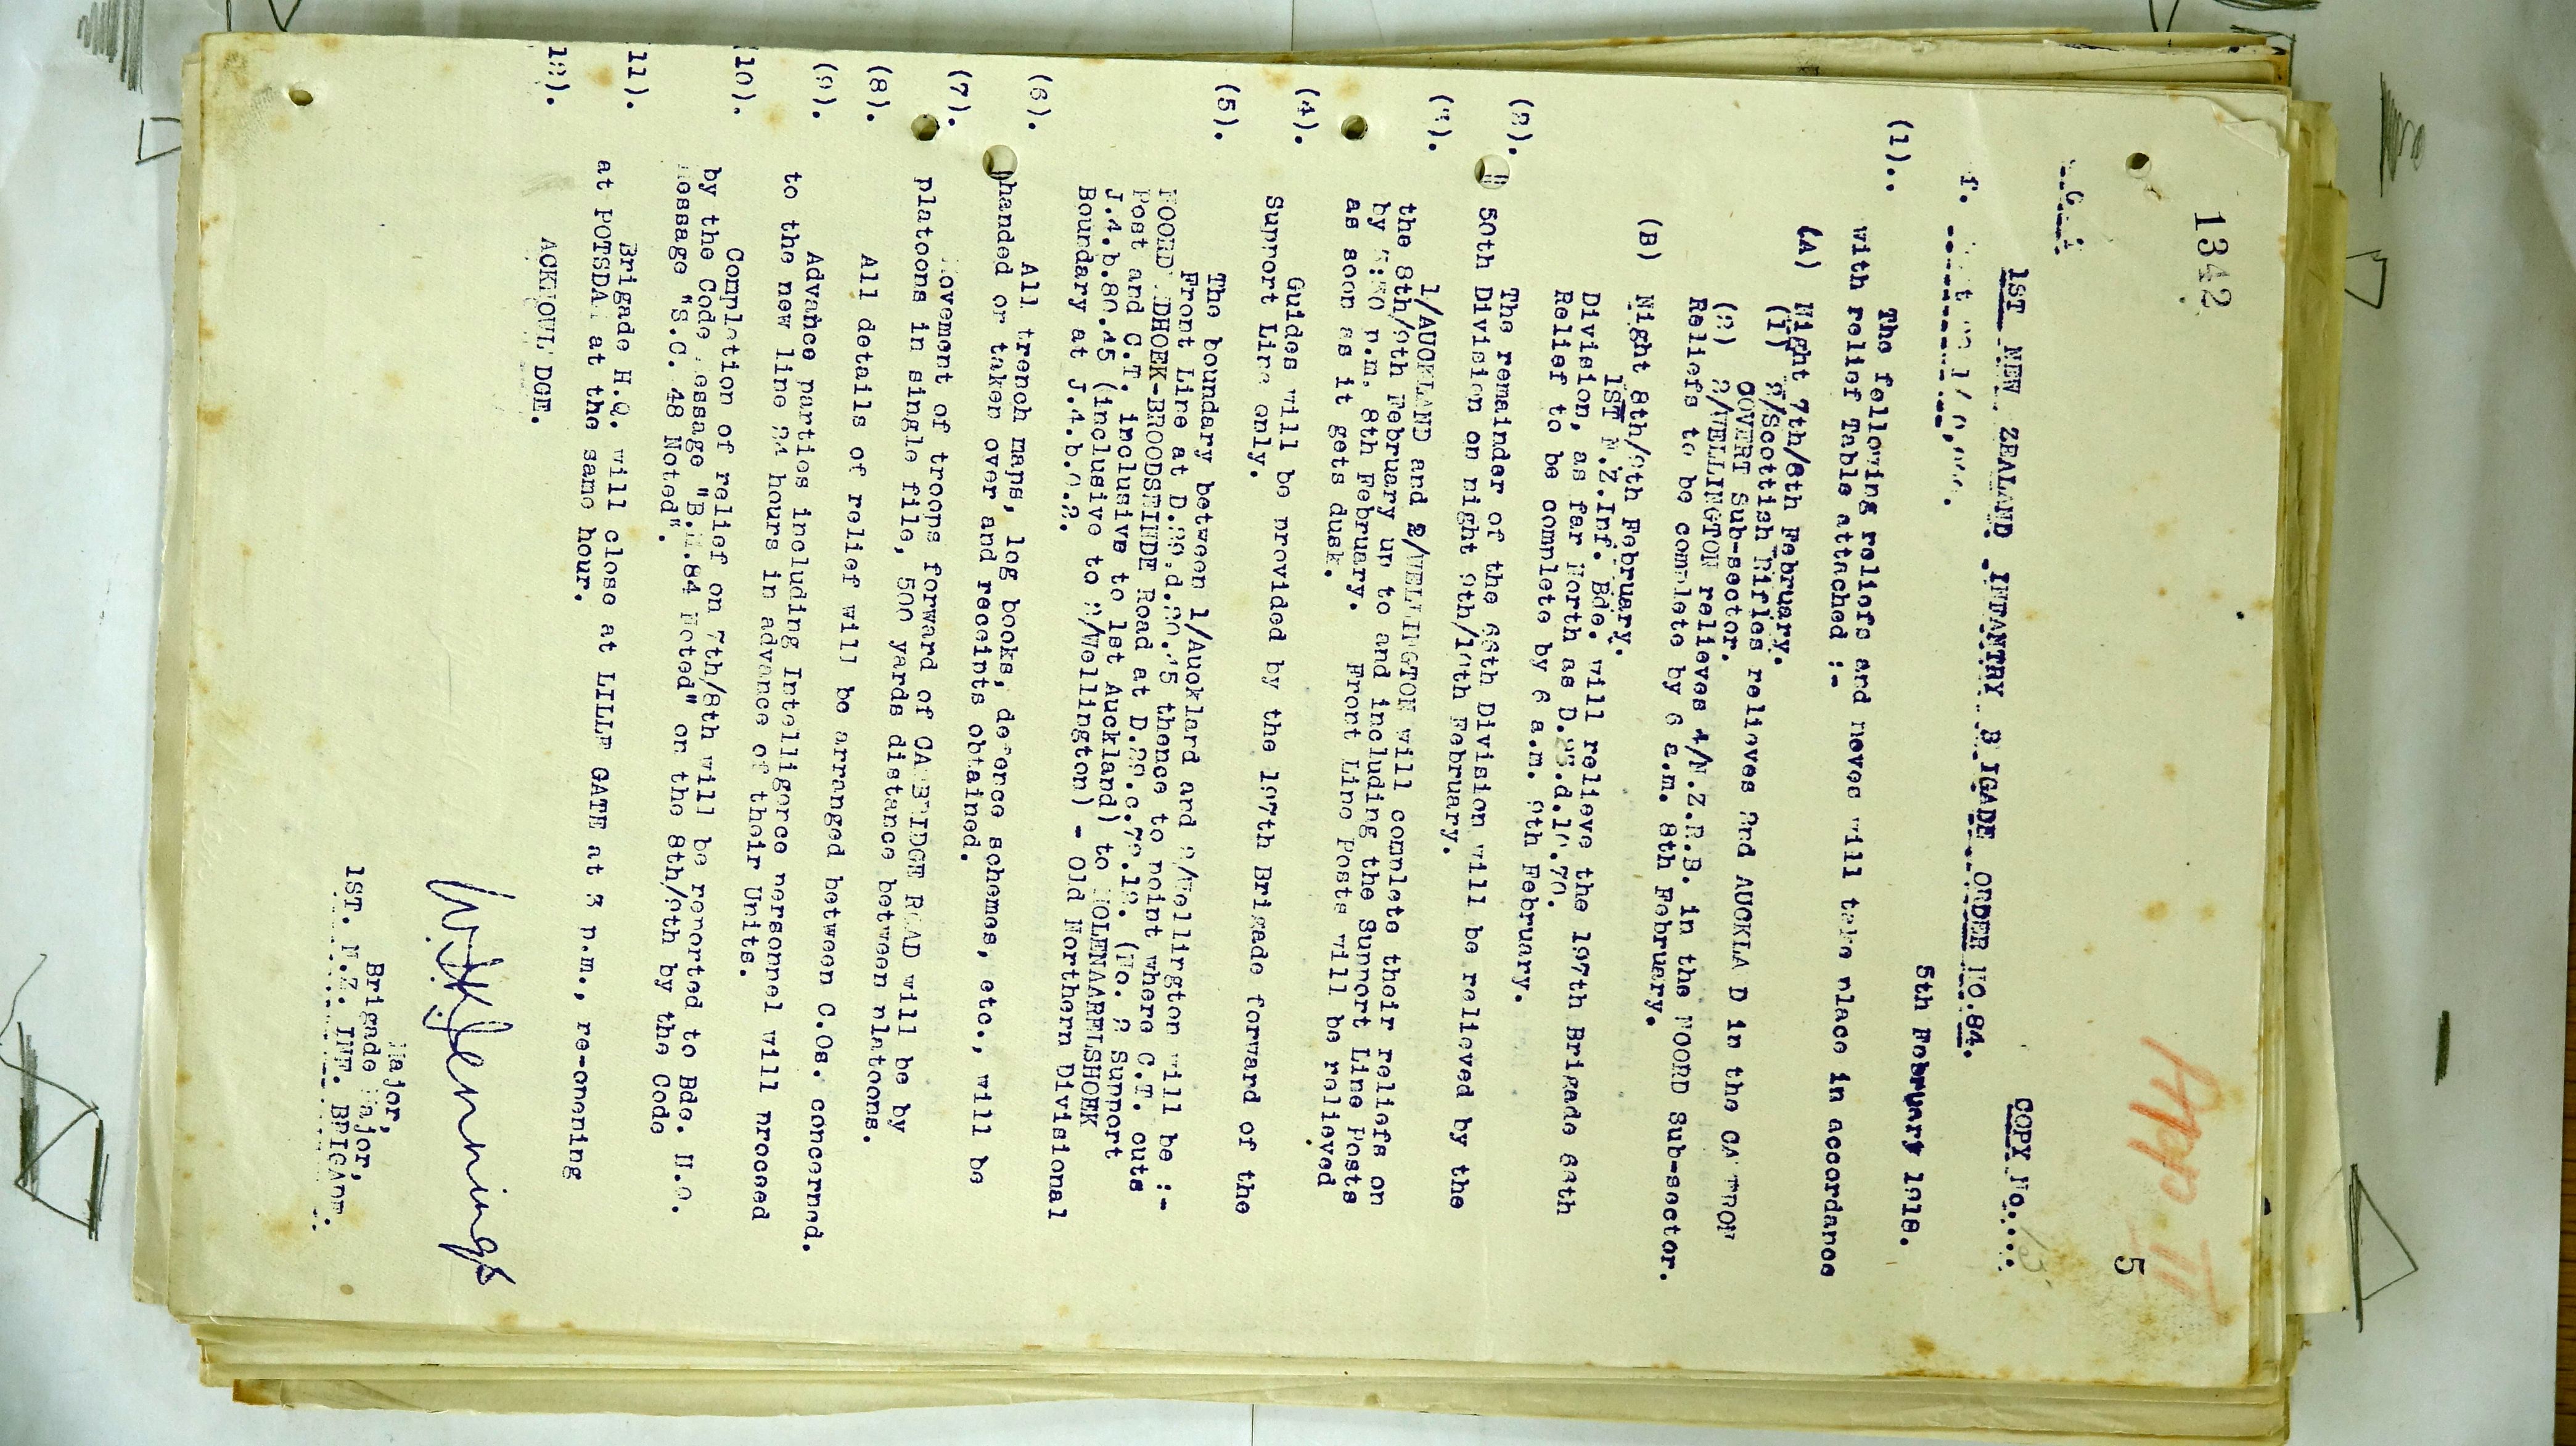 1342
App II
5
COPY No.....
1ST NEW ZEALAND INFANTRY BRIGADE ORDER NO.84.
5th February 1918.
(1).. The following reliefs and moves will take place in accordance
with relief Table attached :-
(A) Night 7th/8th February.
(1) 2/Scottish Rifles relieves 2nd AUCKLAND in the
COVERT Sub-sector.
(2) 2/WELLINGTON relieves 4/N.Z.R.B. in the NOORD Sub-sector.
Reliefs to be complete by 6 a.m. 8th February.
(B) Night 8th/9th February.
1ST N.Z.Inf. Bde. will relieve the 197th Brigade 66th
Division, as far North as
Relief to be complete by 6 a.m. 9th February.
(2). The remainder of the 66th Division will be relieved by the
50th Division on night 9th/10th February.
(3). 1/AUCKLAND and 2/WELLINGTON will complete their reliefs on
the 8th/9th February up to and including the Support Line Posts
by p.m. 8th February. Front Line Posts will be relieved
as soon as it gets dusk.
(4). Guides will be provided by the 197th Brigade forward of the
Support Line only.
(5). The boundary between 1/Auckland and 2/Wellington will be :-
Front Line at thence to point where C.T. cuts
NOORDEMDHOEK-BROODSEINDE Road at (No. 2 Support
Post and C.T. inclusive to 1st Auckland) to MOLENAARELSHOEK
J.4.b.80.45 (inclusive to 2/Wellington) - Old Northern Divisional
Boundary at J.4.b.0.2.
(6). All trench maps, log books, defence schemes, etc., will be
handed or taken over and receipts obtained.
(7). Movement of troops forward of CAMBRIDGE ROAD will be by
platoons in single file, 500 yards distance between platoons.
(8). All details of relief will be arranged between C.Os. concerned.
(9). Advance parties including Intelligence personnel will proceed
to the new line 24 hours in advance of their Units.
(10). Completion of relief on 7th/8th will be reported to Bde. H.Q.
by the Code Message "B.M.84 Noted" on the 8th/9th by the Code
Message "S.C. 48 Noted".
(11). Brigade H.Q. will close at LILLE GATE at 3 p.m., re-opening
at POTSDAM at the same hour.
(12). ACKNOWLEDGE.
Jennings
Major,
Brigade Major,
1ST. N.Z. INF. BRIGADE.